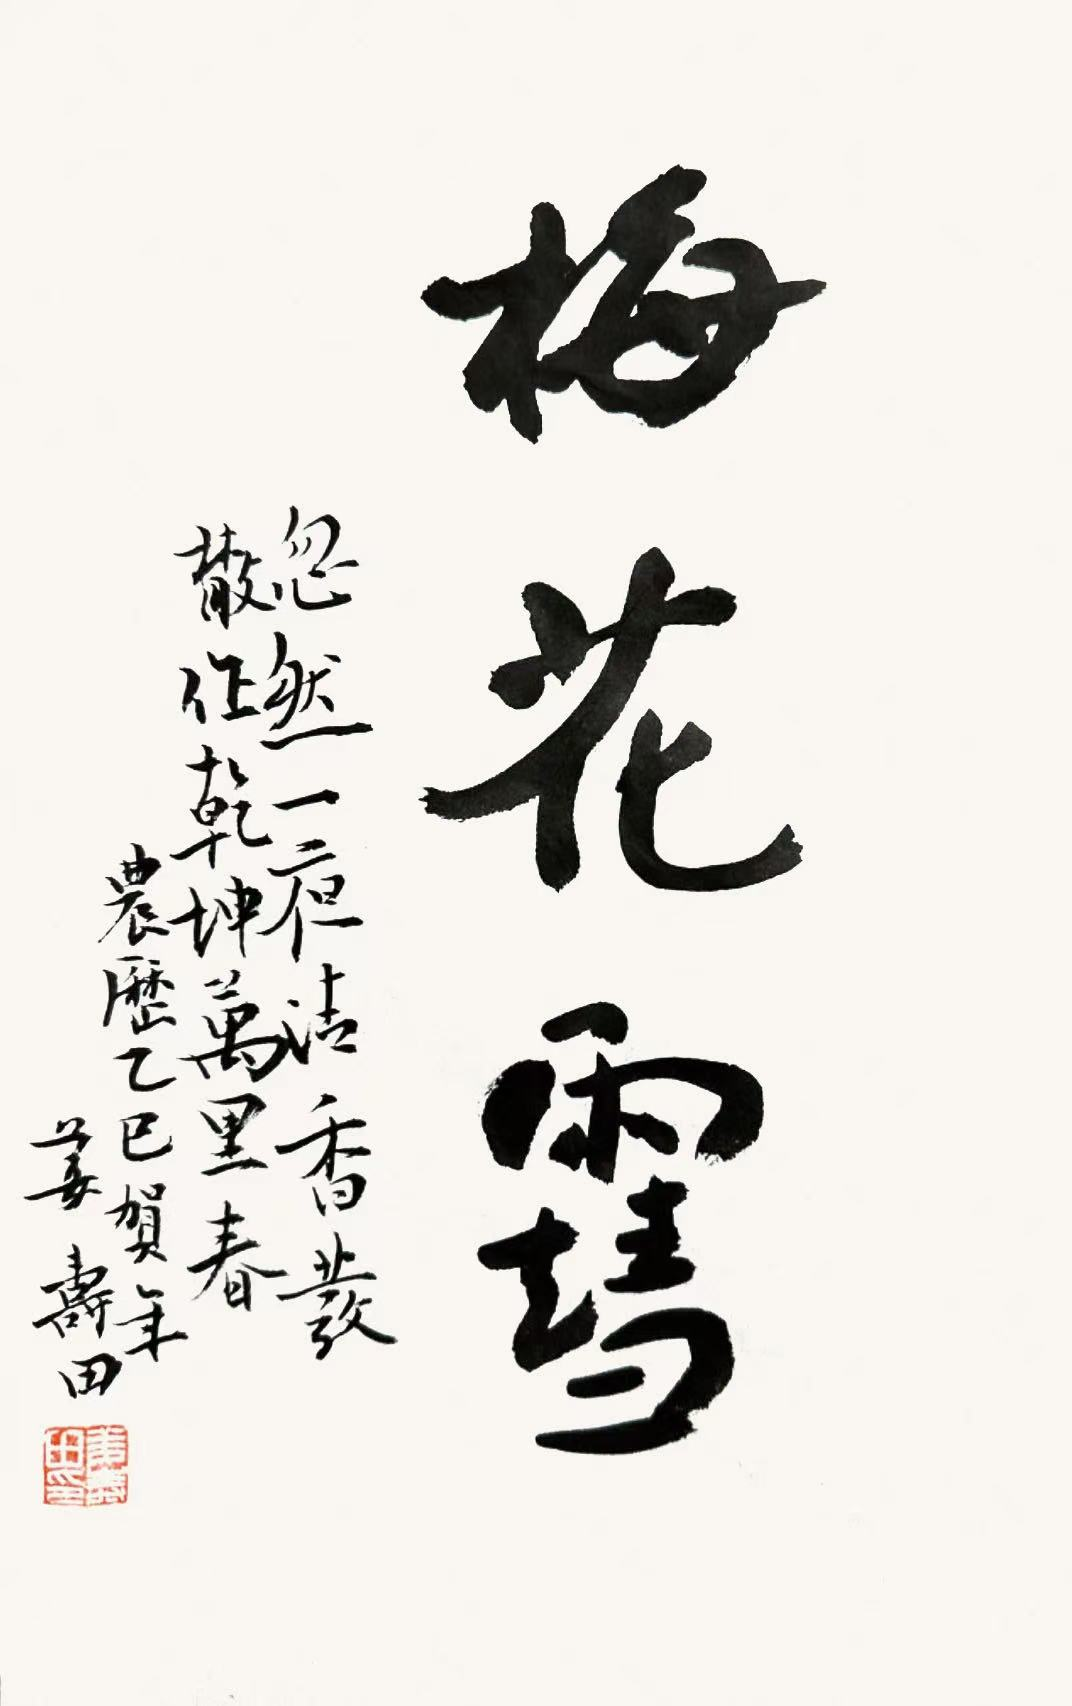 梅花雪
忽然一夜清香發
散作乾坤萬里春
農歷乙巳賀年
姜壽田
姜壽田印